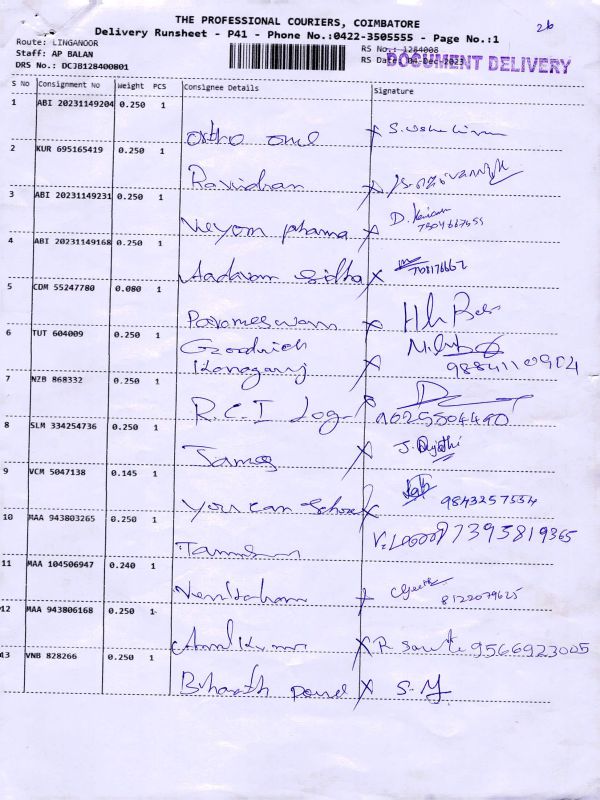 THE PROFESSIONAL COURIERS, COIMBATORE
26
Delivery Runsheet - P41 - Phone No.:0422-3505555 - Page No.:1
Route: LINGANOOR
RS No.: 1284008
Staff: AP BALAN
RS Date: 04-Dec-2023
DOCUMENT DELIVERY
DRS No.: DCJB128400801
S No Consignment No Weight PCS Consignee Details Signature
1 ABI 20231149204 0.250 1
Ortho one x
2 KUR 695165419 0.250 1
Ravichran x
3 ABI 20231149231 0.250 1
Neyom pharma x D.
4 ABI 20231149168 0.250 1
Aadhavam Sidha x
5 CDM 55247780 0.080 1
Parameswaran x
6 TUT 604009 0.250 1
Goodrich
Kanagaraj x 9884110904
7 NZB 868332 0.250 1
R.C.I Log. x
8 SLM 334254736 0.250 1
James x J.
9 VCM 5047138 0.145 1
You can x 9843257554
10 MAA 943803265 0.250 1
7393819365
11 MAA 104506947 0.240 1
Venkatham x 8122079625
12 MAA 943806168 0.250 1
Anil Kumar x R 9566923005
13 VNB 828266 0.250 1
Bharath x S.